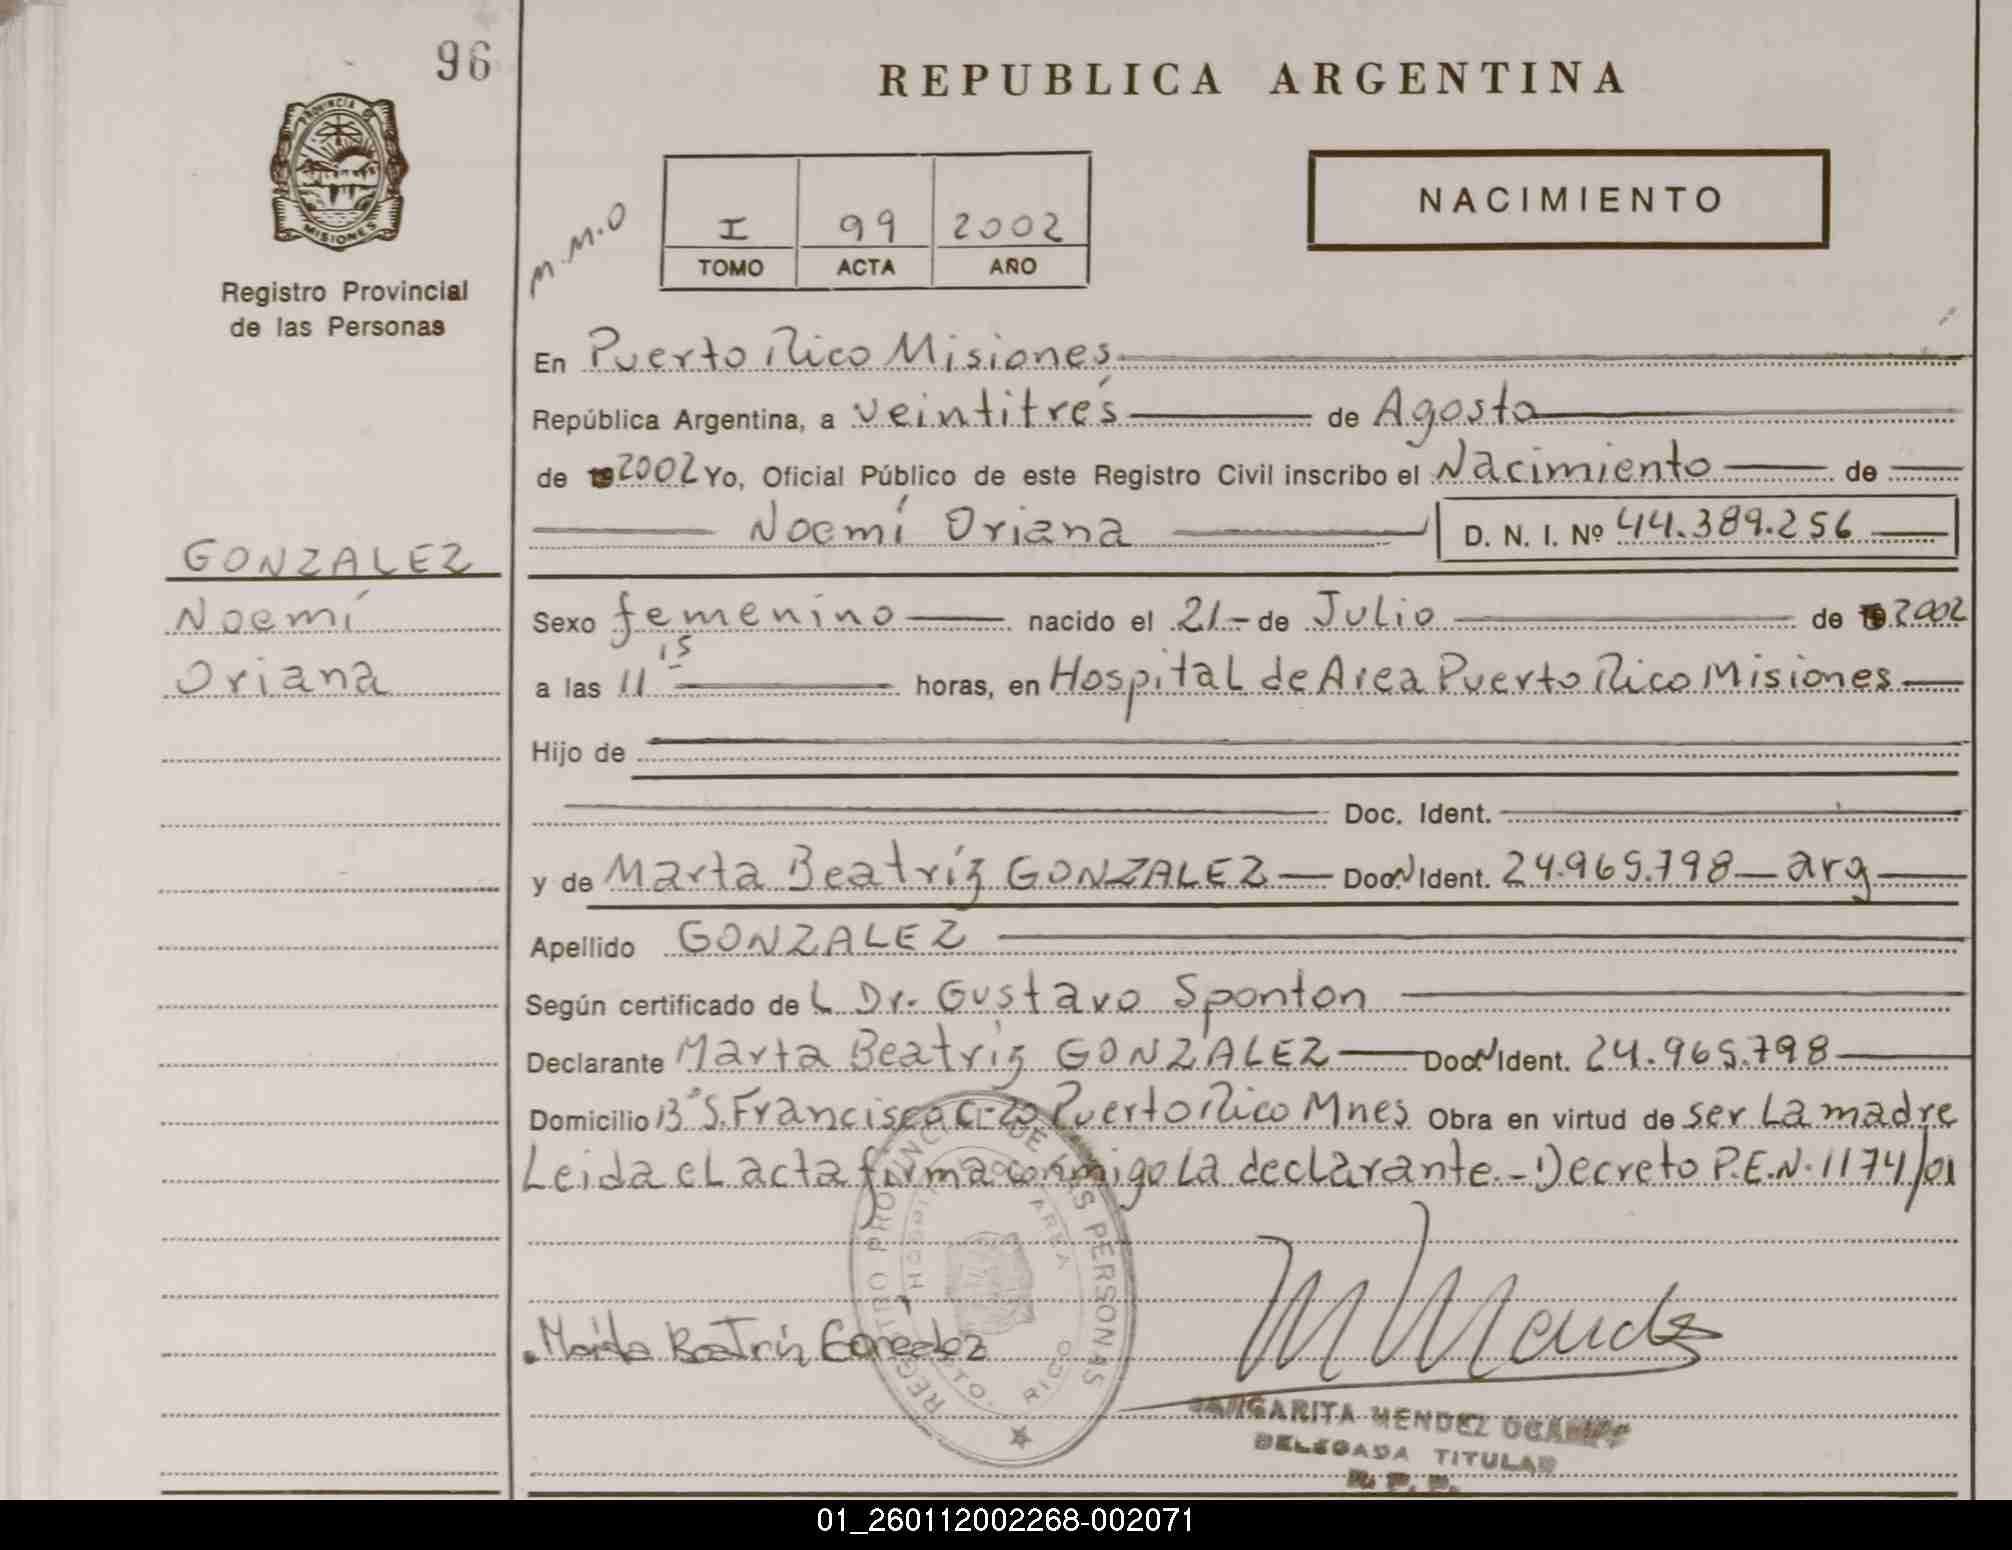 96
REPUBLICA ARGENTINA
PROVINCIA DE
MISIONES
Registro Provincial
de las Personas
M.M.O
I 99 2002
TOMO ACTA AÑO
NACIMIENTO
En Puerto Rico Misiones
República Argentina, a veintitrés de Agosto
de 19 2002 Yo, Oficial Público de este Registro Civil inscribo el Nacimiento de
Noemí Oriana D. N. I. Nº 44.389.256
GONZALEZ
Noemí
Oriana
Sexo femenino nacido el 21- de Julio de 19 2002
a las 11 15 horas, en Hospital de Area Puerto Rico Misiones
Hijo de
Doc. Ident.
y de Marta Beatríz GONZALEZ Doc. N Ident. 24.965.798 arg
Apellido GONZALEZ
Según certificado de L Dr. Gustavo Sponton
Declarante Marta Beatriz GONZALEZ Doc. N Ident. 24.965.798
Domicilio Bº S. Francisco C-20 Puerto Rico Mnes Obra en virtud de ser La madre
Leida el acta firma conmigo La declarante.- Decreto P.E.N. 1174/01
REGISTRO PROVINCIAL DE LAS PERSONAS
HOSPITAL AREA
PTO. RICO
Marta Beatriz Gonzalez
M Mendez
MARGARITA MENDEZ OCAMPO
DELEGADA TITULAR
R. P. P.
01_260112002268-002071